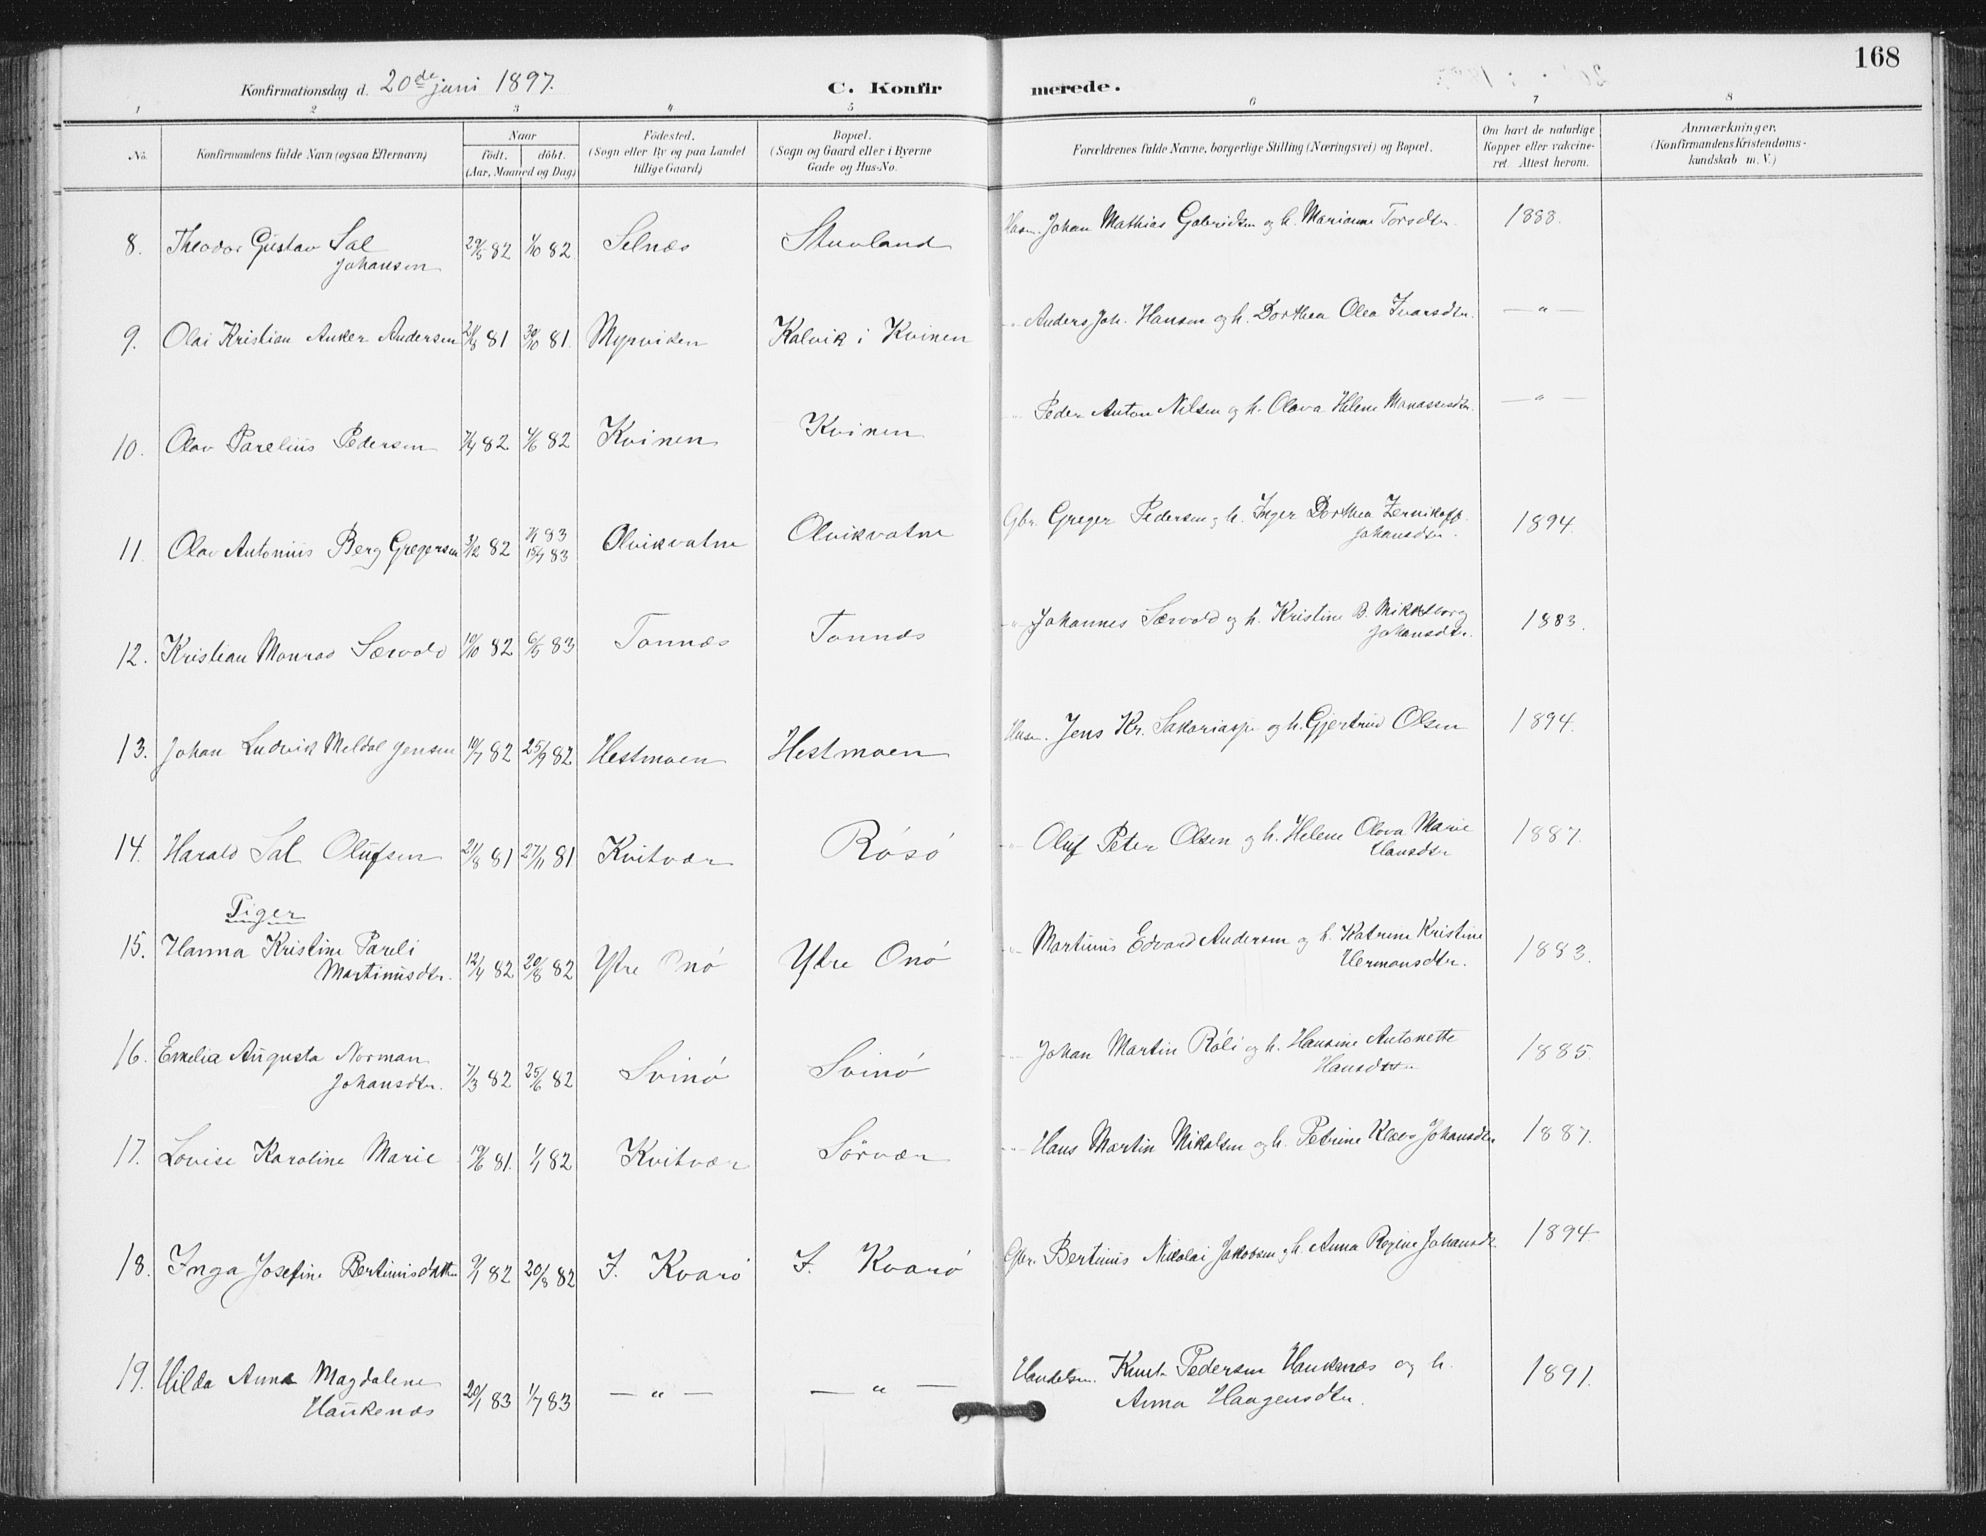 168
Konfirmationsdag d. 20de juni 1897. C. Konfirmerede.
1 2 3 4 5 6 7 8
No. Konfirmandens fulde Navn (ogsaa Efternavn) Naar født. døbt. (Aar, Maaned og Dag) Fødested. (Sogn eller By og paa Landet tillige Gaard) Bopæl. (Sogn og Gaard eller i Byerne Gade og Hus-No. Forældrenes fulde Navne, borgerlige Stilling (Næringsvei) og Bopæl. Om havt de naturlige Kopper eller vakcineret. Attest herom. Anmærkninger. (Konfirmandens Kristendomskundskab m. V.)
8. Theodor Gustav Sal 82 1/10 82 Selnæs Stuvland Husm. Johan Mathias Gabrielsen og h. Marianne Torsdtr. 1888.
Johansen
9. Olai Kristian Anker Andersen 21/8 81 30/10 81. Myrviden Kalvik i Kvinen -"- Anders Joh. Hansen og h. Dorthea Olea Ivarsdtr. — " —
10. Olav Parelius Pedersen 82 4/6 82 Kvinen Kvinen -"- Peder Anton Nilsen og h. Olava Helene Manassesdtr. — " —
11. Olav Antonius Berg Gregersen 3/12 82 83 15/7 83 Olvikvatne Olvikvatne Gbr. Greger Pedersen og h. Inger Dorthea 1894.
Johansdtr.
12. Kristian Monrad Særvold 19/10 82 6/5 83 Tonnes Tonnes -"- Johannes Særvold og h. Kristine B. 1883.
Johansdtr.
13. Johan Ludvik Meldal Jensen 10/7 82 25/9 82 Hestmoen Hestmoen Husm. Jens Kr. Sakarias. og h. Gjertrud Olsen 1894.
14. Harald Sal Olufsen 21/8 81 27/11 81 Kvitvær Røsø -"- Oluf Peter Olsen og h. Helene Olava Marie 1887.
Hansdtr
Piger
15. Hanna Kristine Pareli 12/4 82 20/8 82 Ytre Onø Ytre Onø -"- Martinus Edvard Andersen og h. Katrine Kristine 1883.
Martinusdtr. Hermansdtr.
16. Emilia Augusta Norman 7/3 82 25/6 82 Svinø Svinø -"- Johan Martin Røli og h. Hansine Antonette 1885.
Johansdtr. Hansdtr
17. Lovise Karoline Marie 19/6 81. 1/1 82 Kvitvær Sørvær -"- Hans Martin Nikolsen og h. Petrine Klæs Johansdtr 1887.
18. Inga Josefine Bertinusdatter 9/1 82 20/8 82 I. Kvarø I. Kvarø Gbr. Bertinus Nikolai Jakobsen og h. Anna Regine Johansdt. 1894
19. Hilda Anna Magdalene 20/1 83 1/7 83 — " — — " — Handelsm. Knut Pedersen Haukenæs og h. 1891.
Haukenæs Anna Haagensdtr.